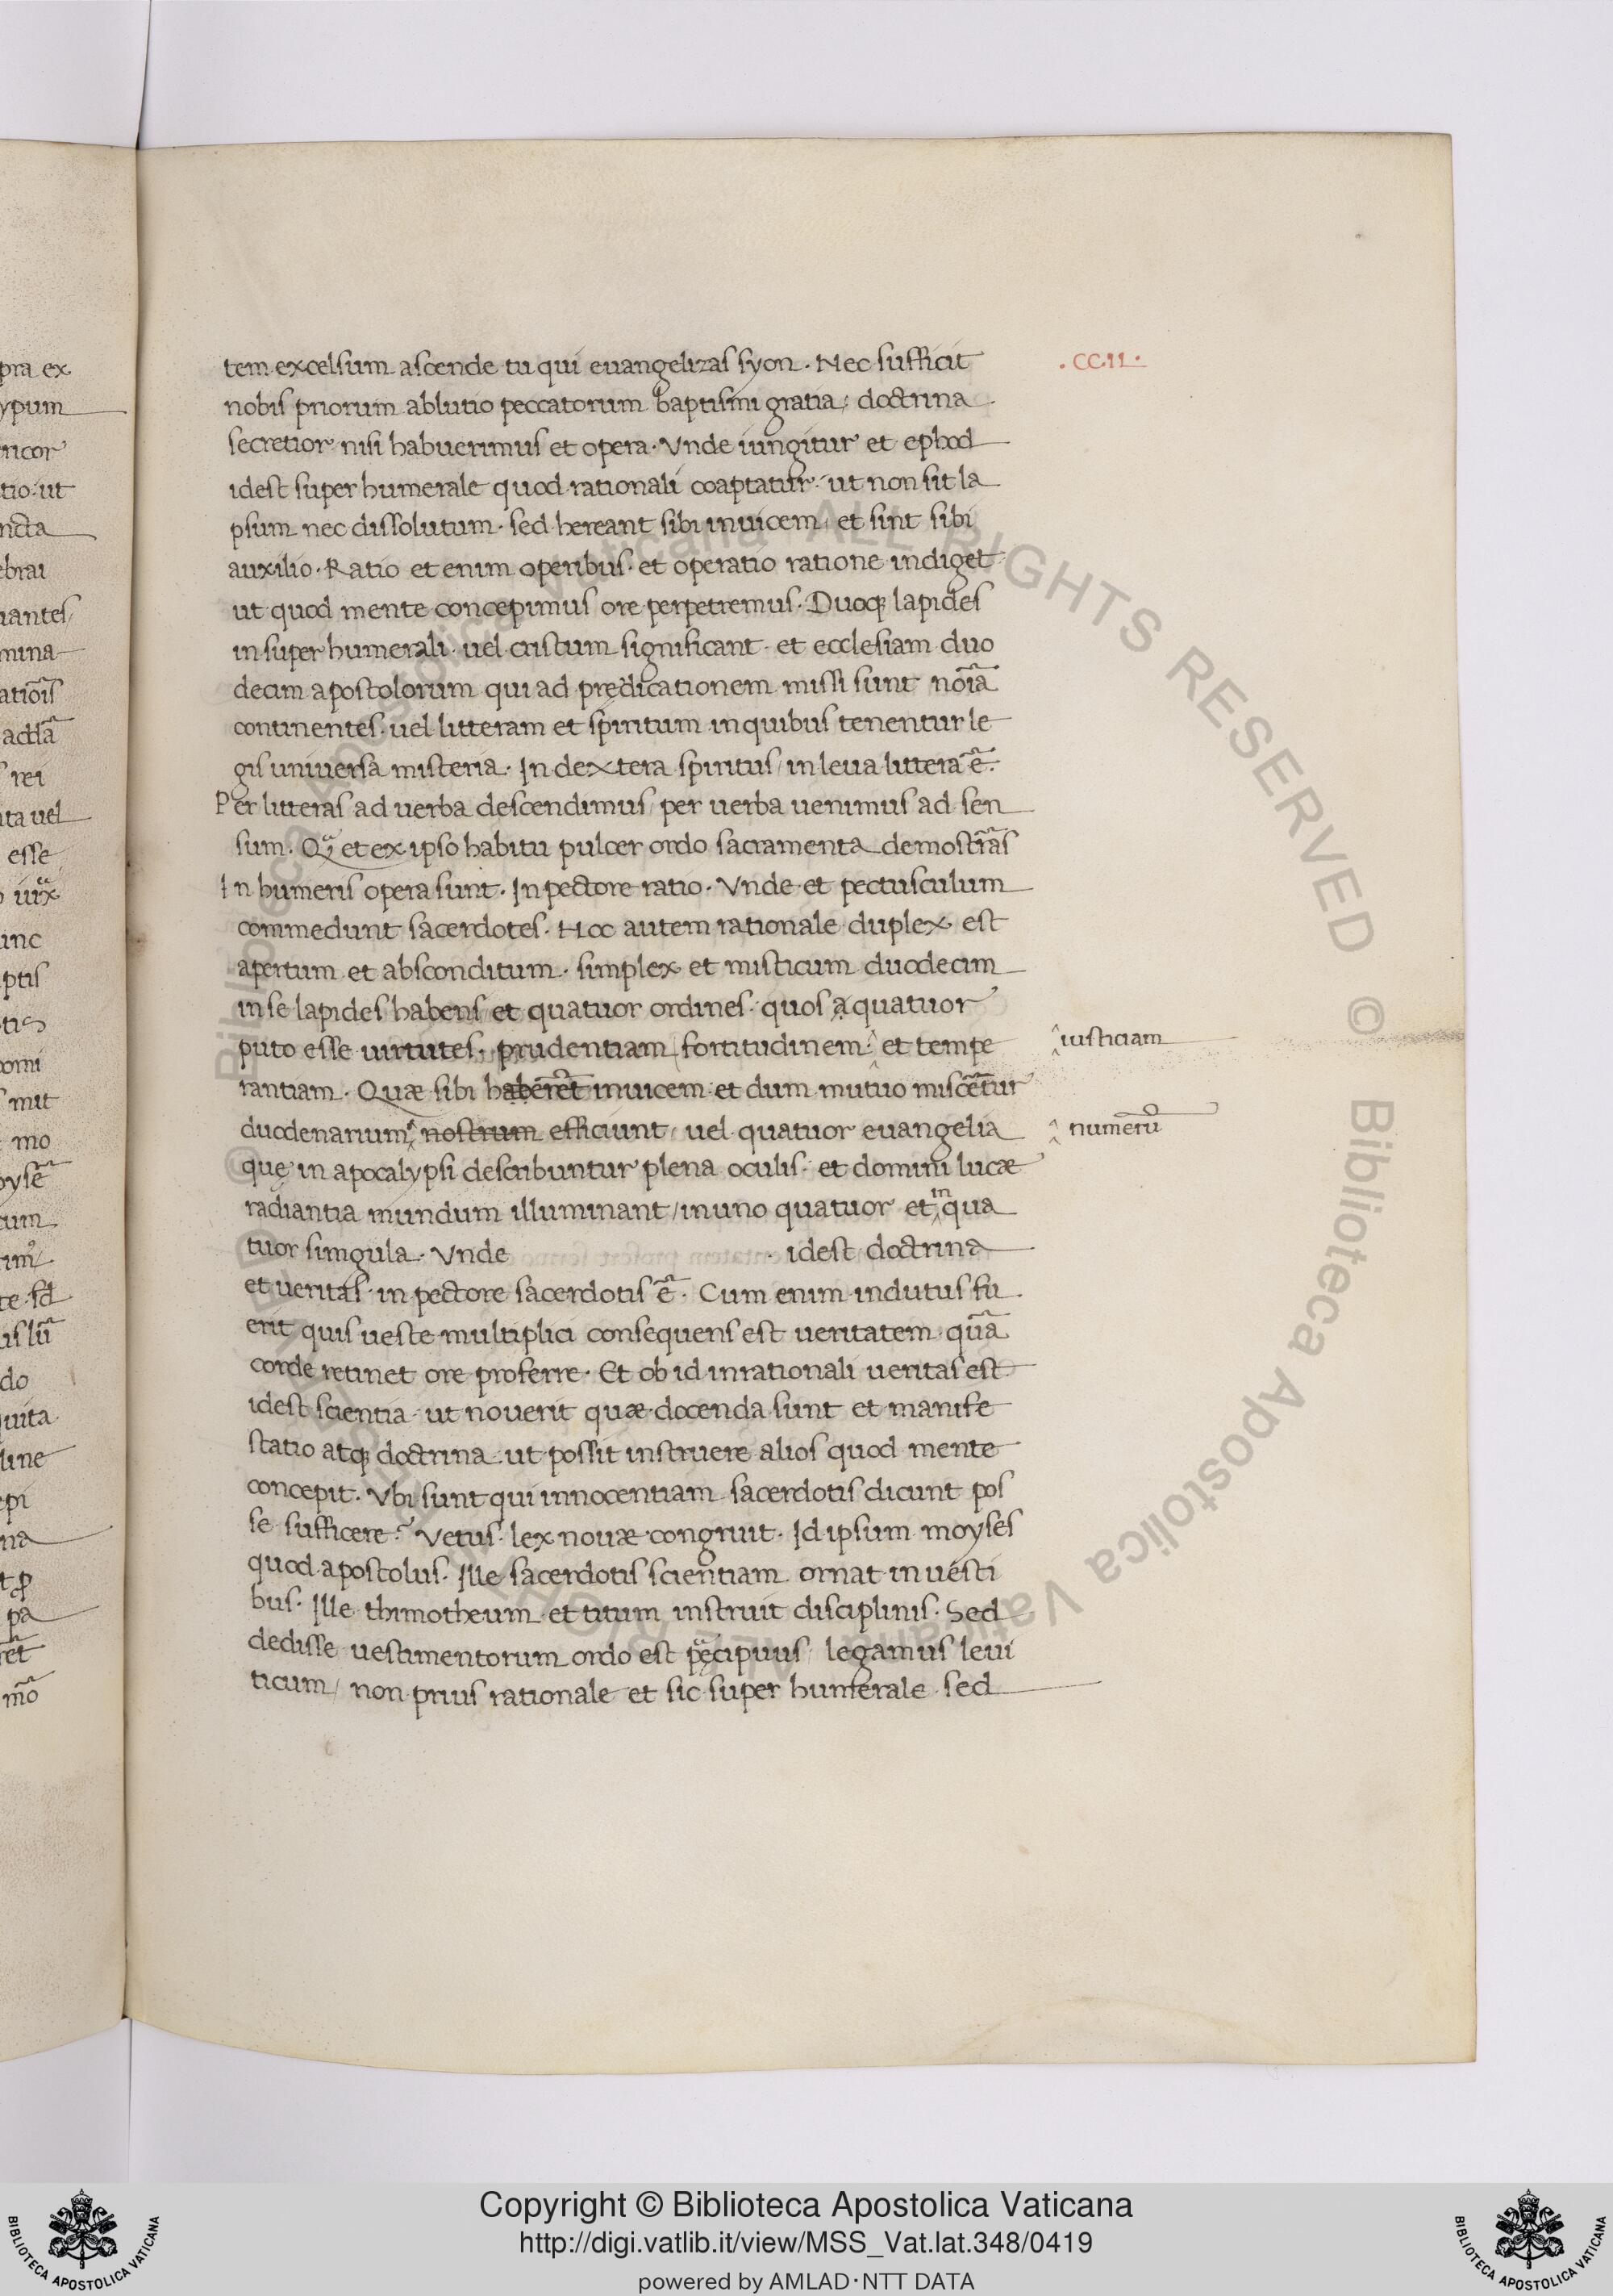 tem excelsum ascende tu qui euangelizas syon. Nec sufficit
.CCII.
nobis priorum ablutio peccatorum baptismi gratia: doctrina
secretior nisi habuerimus et opera. Vnde iungitur et ephod
idest super humerale quod rationali coaptatur: ut non sit la
psum nec dissolutum. sed hereant sibi inuicem/ et sint sibi
auxilio. Ratio et enim operibus. et operatio ratione indiget
ut quod mente concepimus ore perpetremus. Duoqꝫ lapides
in super humerali. uel cristum significant. et ecclesiam duo
decim apostolorum qui ad predicationem missi sunt noīa
continentes. uel litteram et spiritum in quibus tenentur le
gis uniuersa misteria. In dextera spiritus/ in leua littera ē.
Per litteras ad uerba descendimus/ per uerba uenimus ad sen
sum. Qᷓ et ex ipso habitu pulcer ordo sacramenta demostrās
In humeris opera sunt. In pectore ratio. Vnde et pectusculum
commedunt sacerdotes. Hoc autem rationale duplex est
apertum et absconditum. simplex et misticum duodecim
in se lapides habens et quatuor ordines. quos a quatuor
puto esse uirtutes. prudentiam/ fortitudinem. ^ et tempe
^iusticiam
rantiam. Quæ sibi haberēt inuicem et dum mutuo miscētur
duodenarium ^ nostrum efficiunt/ uel quatuor euangelia
^ numerū
quę in apocalypsi describuntur plena oculis. et domini lucæ
radiantia mundum illuminant/ in uno quatuor et ^in qua
tuor simgula. Vnde . idest doctrina
et ueritas in pectore sacerdotis ē. Cum enim indutus fu
erit quis ueste multiplici consequens est ueritatem quā
corde retinet ore proferre. Et ob id in rationali ueritas est
idest scientia. ut nouerit quæ docenda sunt et manife
statio atqꝫ doctrina. ut possit instruere alios quod mente
concepit. Vbi sunt qui innocentiam sacerdotis dicunt pos
se sufficere? Vetus lex nouæ congruit. Id ipsum moyses
quod apostolus. Ille sacerdotis scientiam ornat in uesti
bus. Ille thimotheum et titum instruit disciplinis. Sed
dedisse uestimentorum ordo est pᷓcipuus/ legamus leui
ticum/ non prius rationale et sic super humerale sed
Copyright © Biblioteca Apostolica Vaticana
http://digi.vatlib.it/view/MSS_Vat.lat.348/0419
powered by AMLAD·NTT DATA